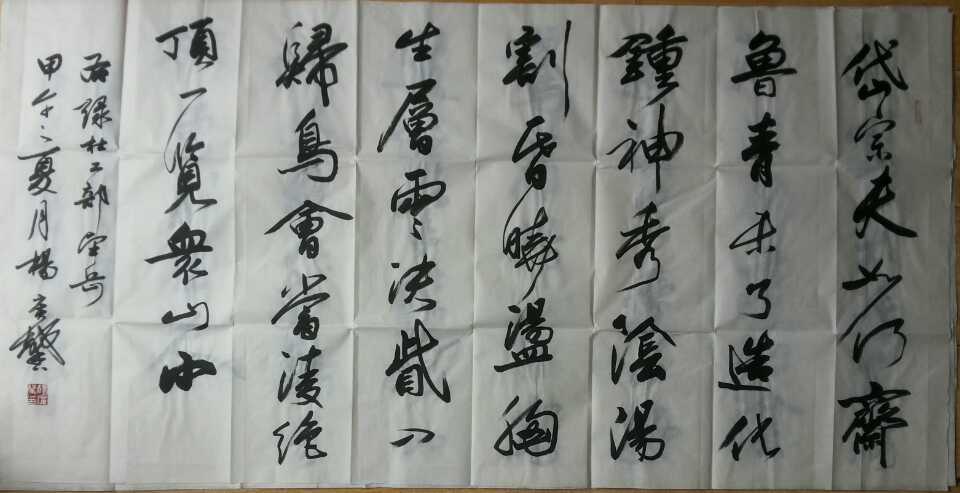 岱宗夫如何齊
魯青未了造化
鍾神秀陰湯
割昏曉盪胸
生層雲決眥入
歸鳥會當淩絕
頂一覽衆山小
右録杜工部望岳
甲午之夏月楊